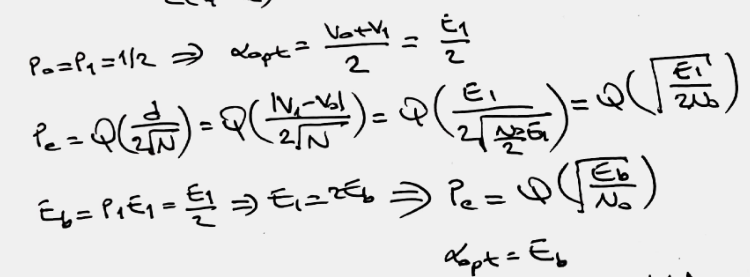 P₀=P₁=1/2 ⇒ αopt = (V₀+V₁)/2 = E₁/2
Pe = Q(d/(2√N)) = Q(|V₁-V₀|/(2√N)) = Q(E₁/(2√(N₀/2 E₁))) = Q(√(E₁/(2N₀)))
Eb = P₁E₁ = E₁/2 ⇒ E₁=2Eb ⇒ Pe = Q(√(Eb/N₀))
αopt = Eb